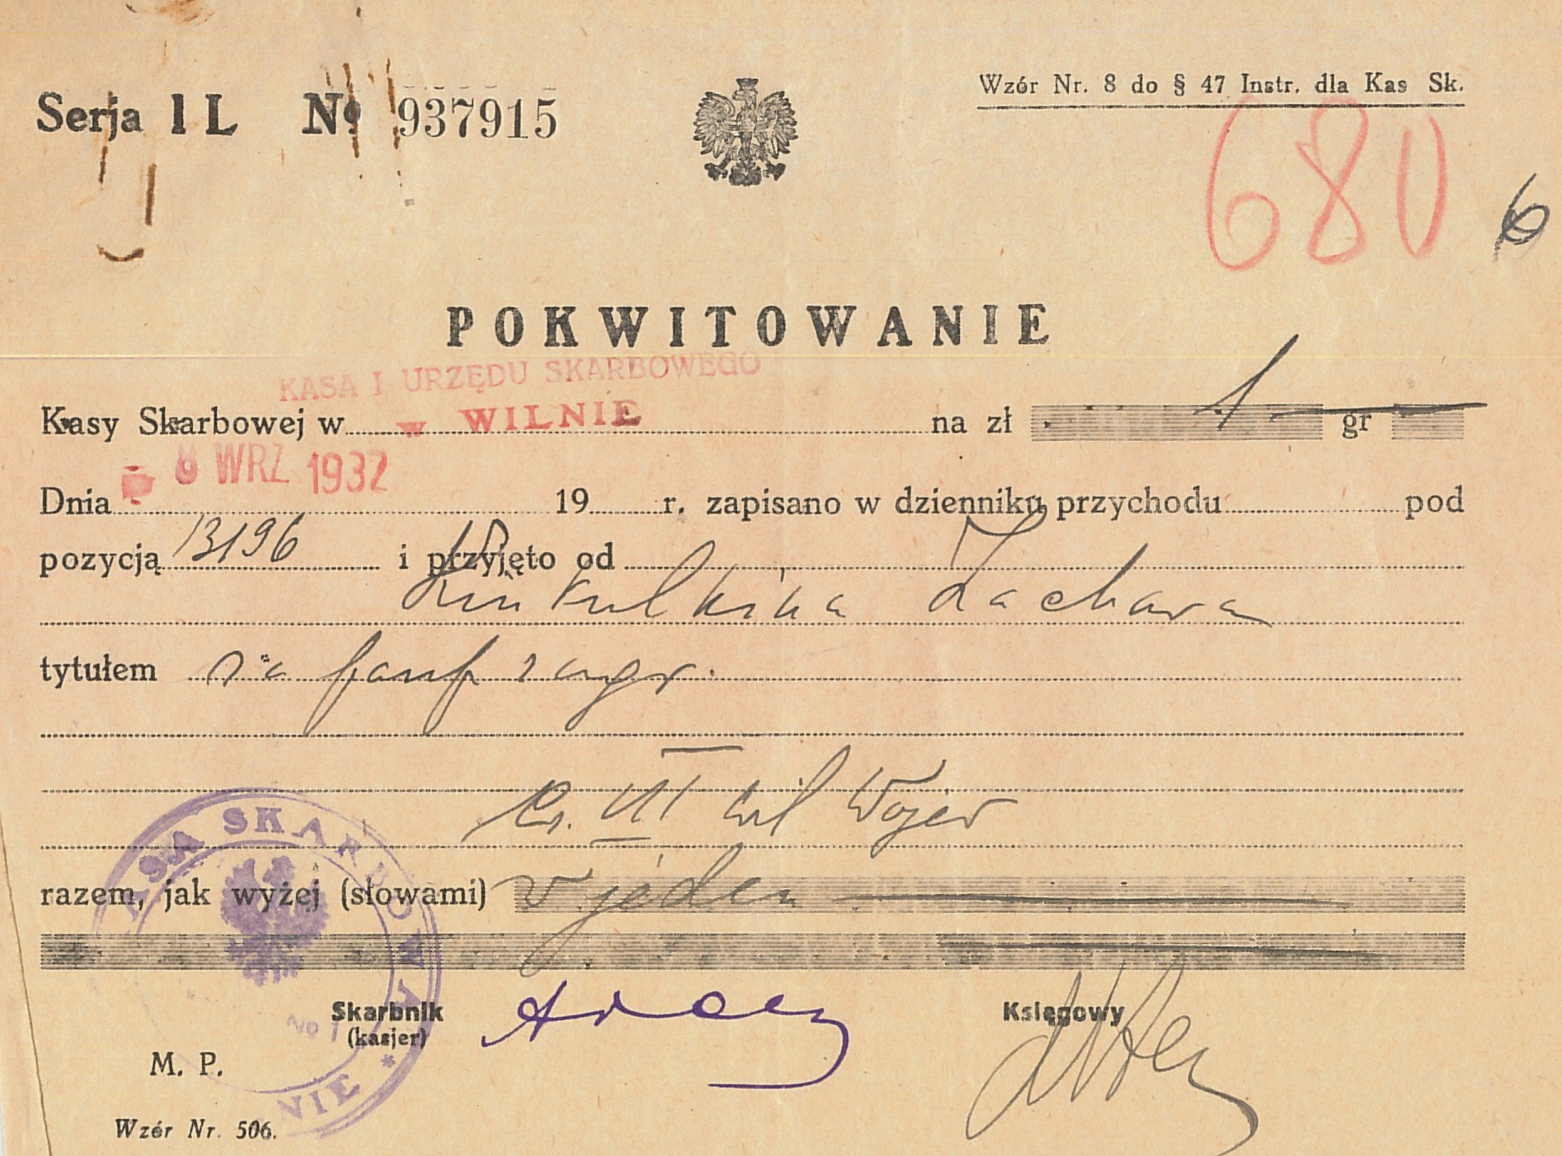 Serja 1 L № 937915
Wzór Nr. 8 do § 47 Instr. dla Kas Sk.
680
6
POKWITOWANIE
KASA I URZĘDU SKARBOWEGO
Kasy Skarbowej w w WILNIE na zł 1 gr
8 WRZ 1932
Dnia 19 r. zapisano w dzienniku przychodu pod
pozycją 13196 i przyjęto od
Zachara
tytułem za
VII Wojew
razem, jak wyżej (słowami) jeden
Skarbnik Księgowy
(kasjer)
M. P.
KASA SKARBOWA * No 1
Wzór Nr. 506.